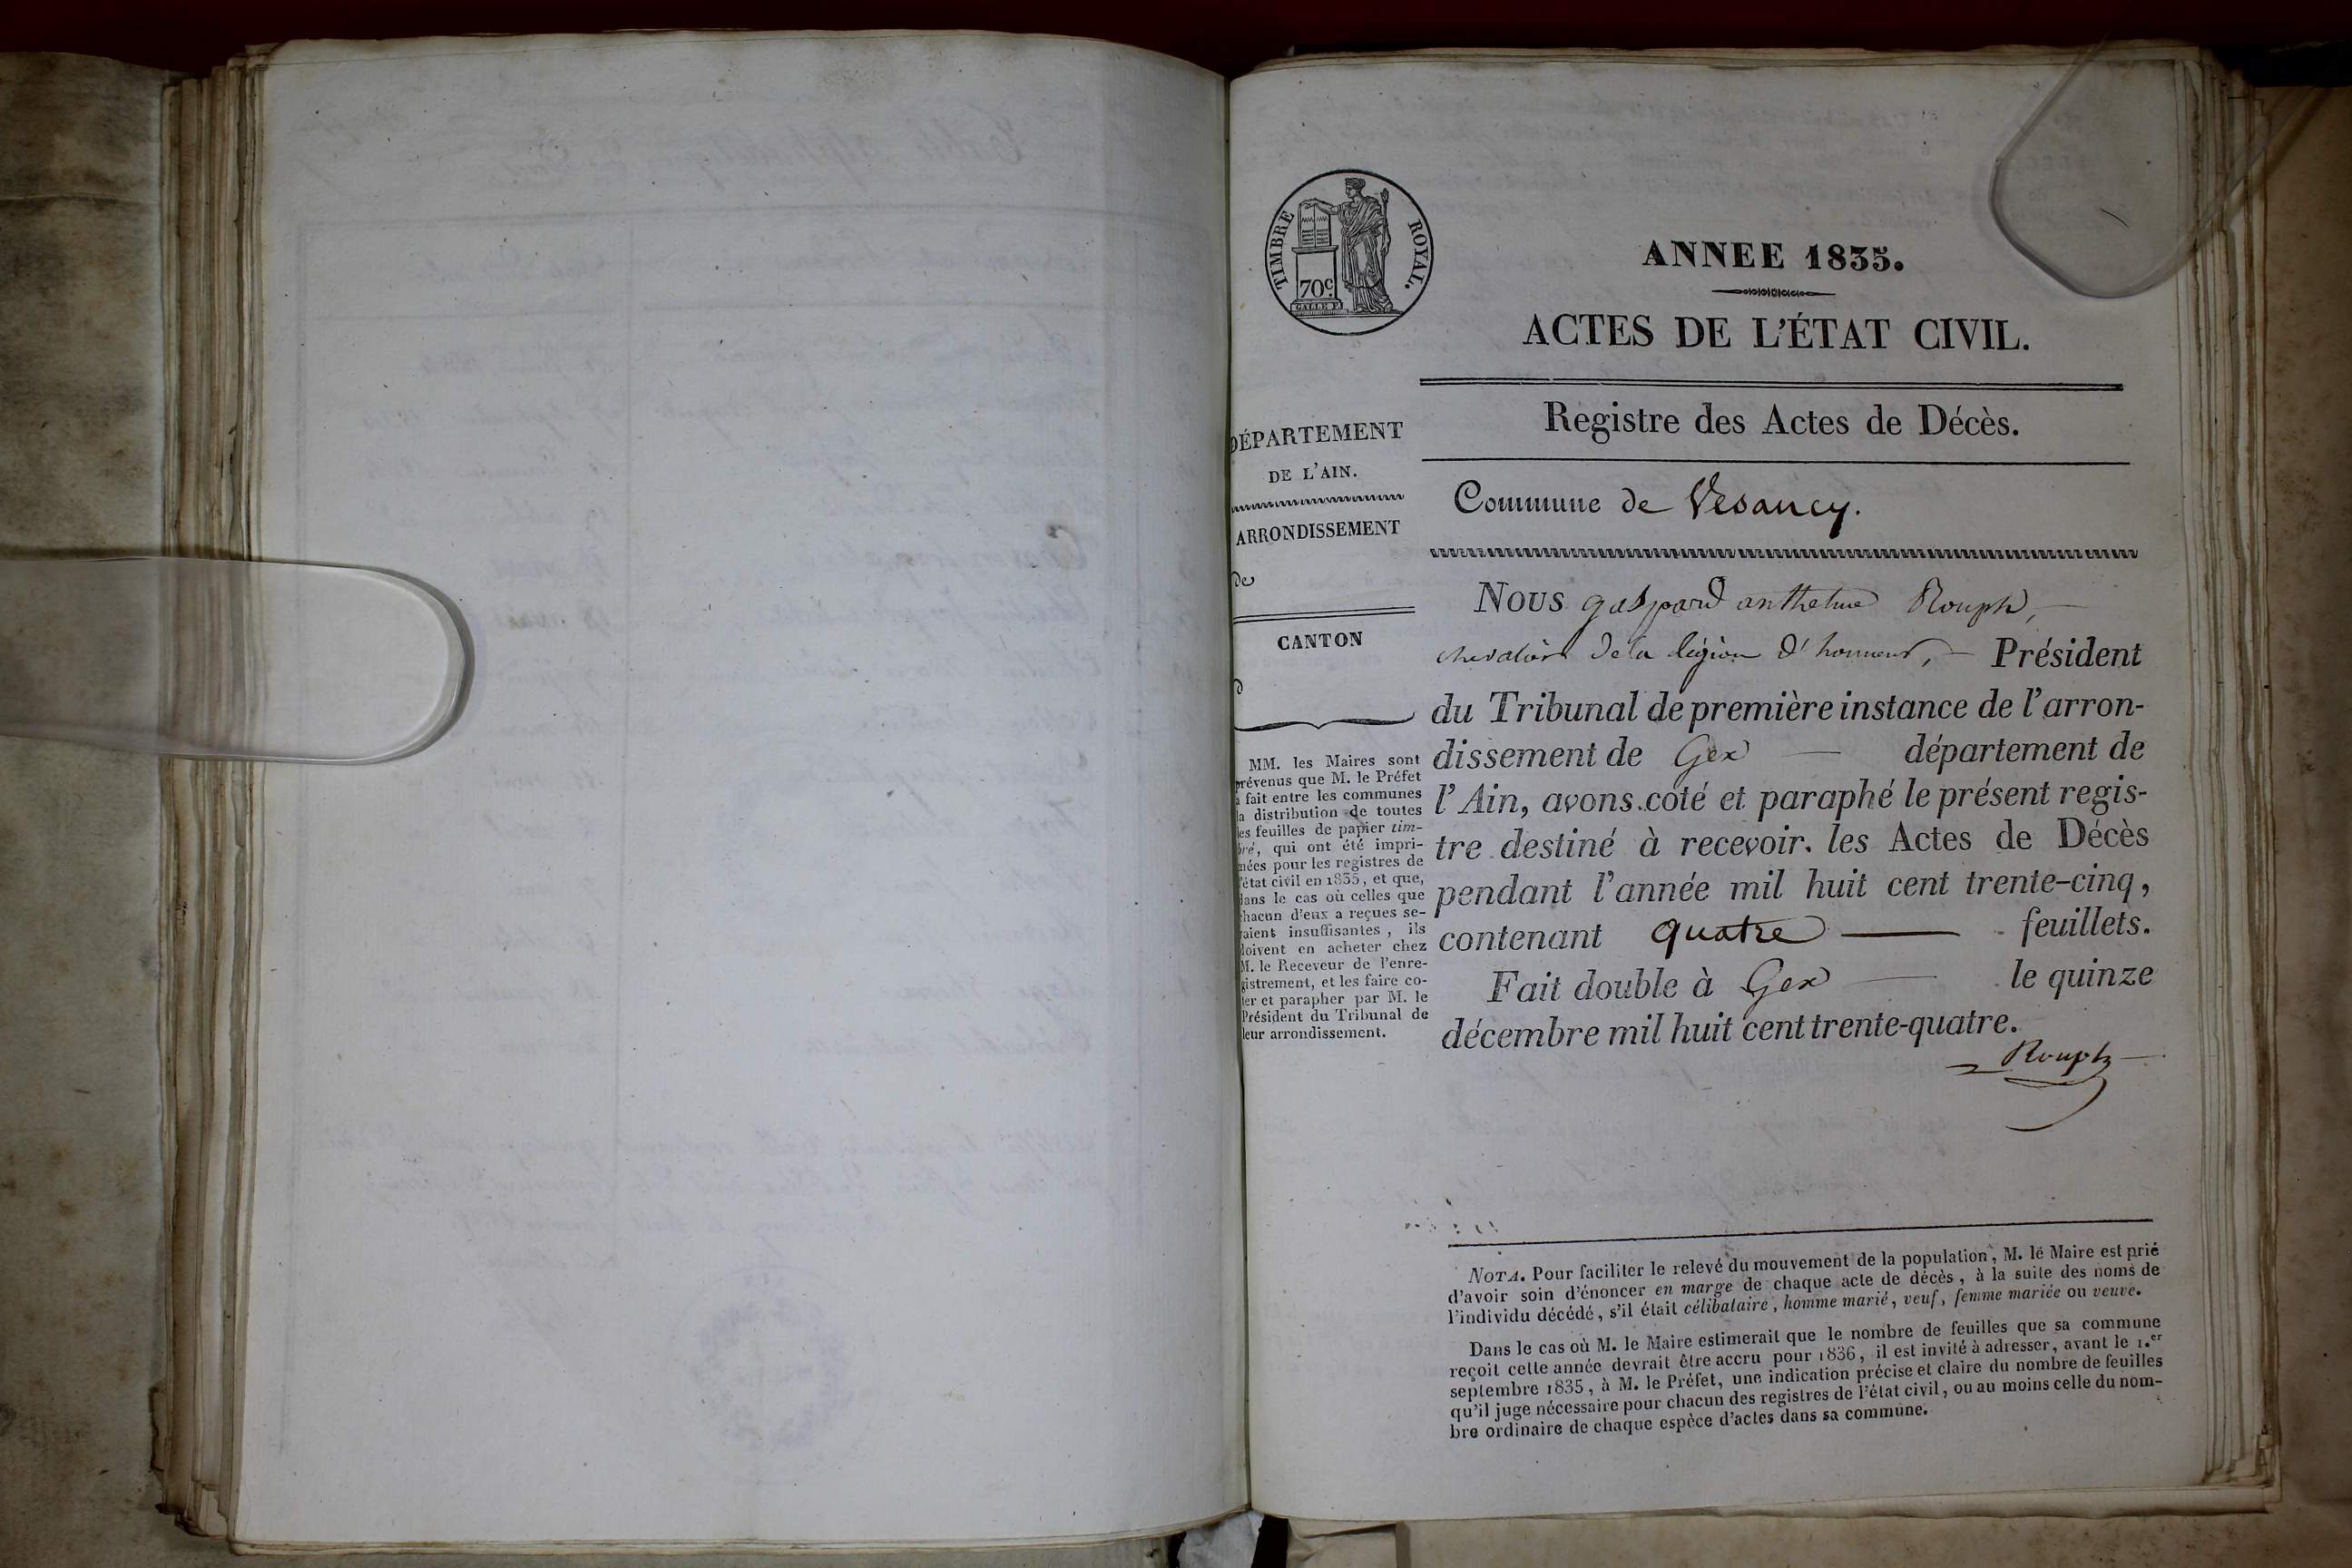 TIMBRE ROYAL.
70c
ANNEE 1835.
ACTES DE L'ÉTAT CIVIL.
Registre des Actes de Décès.
DÉPARTEMENT
DE L'AIN.
ARRONDISSEMENT
de
CANTON
MM. les Maires sont
prévenus que M. le Préfet
a fait entre les communes
la distribution de toutes
les feuilles de papier tim-
bré, qui ont été impri-
mées pour les registres de
l'état civil en 1835, et que,
dans le cas où celles que
chacun d'eux a reçues se-
raient insuffisantes, ils
doivent en acheter chez
M. le Receveur de l'enre-
gistrement, et les faire co-
ter et parapher par M. le
Président du Tribunal de
leur arrondissement.
Commune de Vesancy.
Nous gaspard anthelme Rouph,
chevalier de la légion d'honneur, Président
du Tribunal de première instance de l'arron-
dissement de Gex département de
l'Ain, avons coté et paraphé le présent regis-
tre destiné à recevoir les Actes de Décès
pendant l'année mil huit cent trente-cinq,
contenant quatre feuillets.
Fait double à Gex le quinze
décembre mil huit cent trente-quatre.
Rouph
NOTA. Pour faciliter le relevé du mouvement de la population, M. le Maire est prié
d'avoir soin d'énoncer en marge de chaque acte de décès, à la suite des noms de
l'individu décédé, s'il était célibataire, homme marié, veuf, femme mariée ou veuve.
Dans le cas où M. le Maire estimerait que le nombre de feuilles que sa commune
reçoit cette année devrait être accru pour 1836, il est invité à adresser, avant le 1.er
septembre 1835, à M. le Préfet, une indication précise et claire du nombre de feuilles
qu'il juge nécessaire pour chacun des registres de l'état civil, ou au moins celle du nom-
bre ordinaire de chaque espèce d'actes dans sa commune.